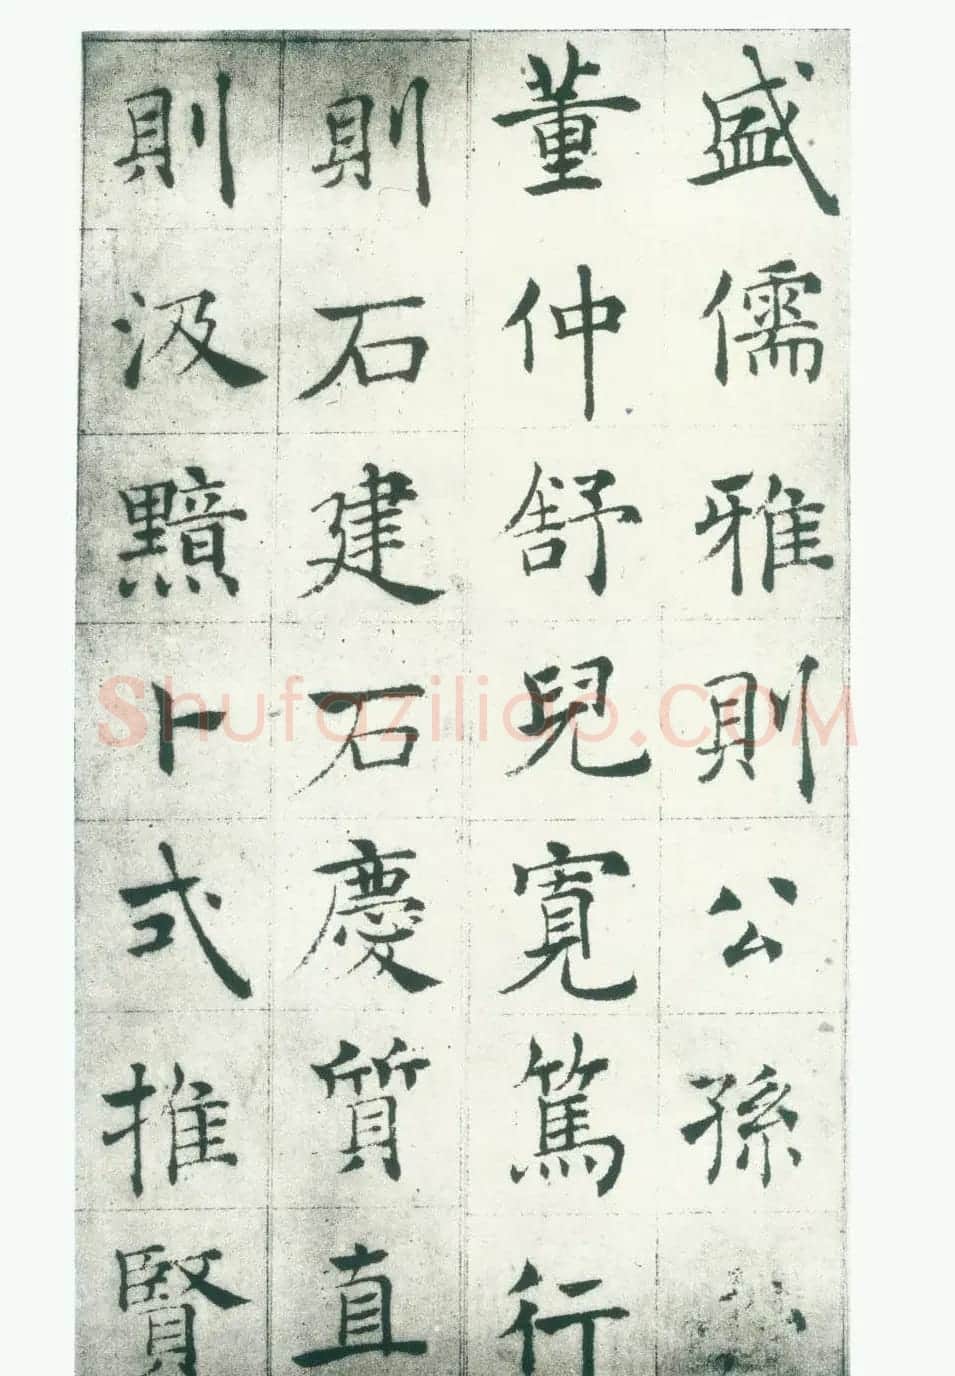 盛儒雅則公孫
董仲舒兒寬篤行
則石建石慶質直
則汲黯卜式推賢
Shufaziliao.COM